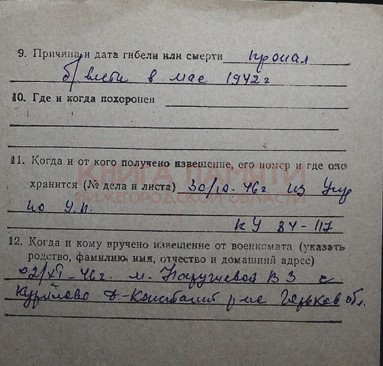 9. Причина и дата гибели или смерти пропал
б/вести в мае 1942 г
10. Где и когда похоронен
11. Когда и от кого получено извещение, его номер и где оно
хранится (№ дела и листа) 30/10-46г из Упр
по У.П.
КУ 84-117
12. Когда и кому вручено извещение от военкомата (указать
родство, фамилию, имя, отчество и домашний адрес)
02/XI-46г. м. В З с
Курилово Д-Константин р-на Горьков обл.
КНИГА ПАМЯТИ
НИЖЕГОРОДСКОЙ ОБЛАСТИ